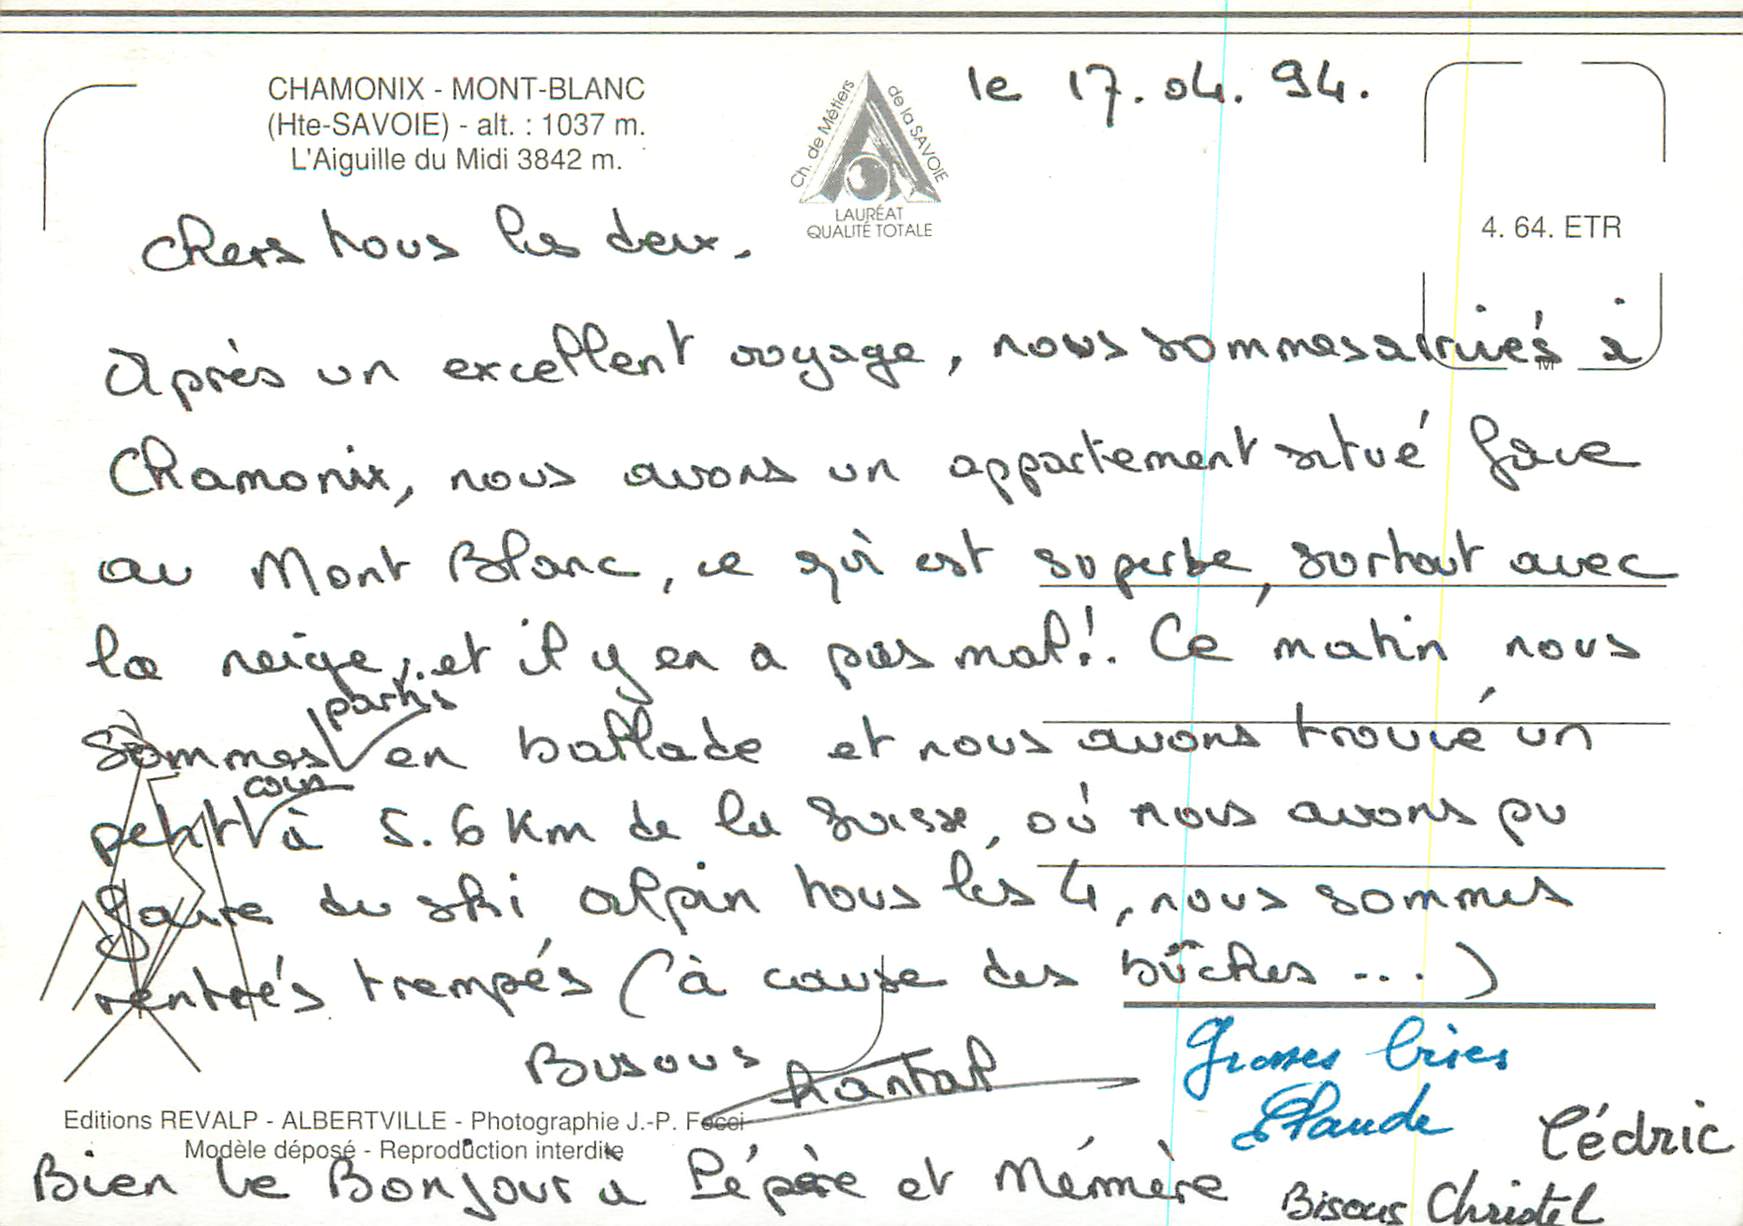 CHAMONIX - MONT-BLANC
(Hte-SAVOIE) - alt. : 1037 m.
L'Aiguille du Midi 3842 m.
Ch. de Métiers de la SAVOIE
LAURÉAT
QUALITÉ TOTALE
le 17.04.94.
4. 64. ETR
Chers tous les deux.
Après un excellent voyage, nous sommes arrivés à
Chamonix, nous avons un appartement situé face
au Mont Blanc, ce qui est superbe, surtout avec
la neige, et il y en a pas mal!. Ce matin nous
sommes partis en ballade et nous avons trouvé un
petit coin à 5.6 Km de la Suisse, où nous avons pu
faire du ski alpin tous les 4, nous sommes
rentrés trempés (à cause des bûches ...)
Bisous Chantal
Grosses bises
Claude
Cédric
Editions REVALP - ALBERTVILLE - Photographie J.-P. Focei
Modèle déposé - Reproduction interdite
Bien le Bonjour à Pépère et Mémère
Bisous Christel